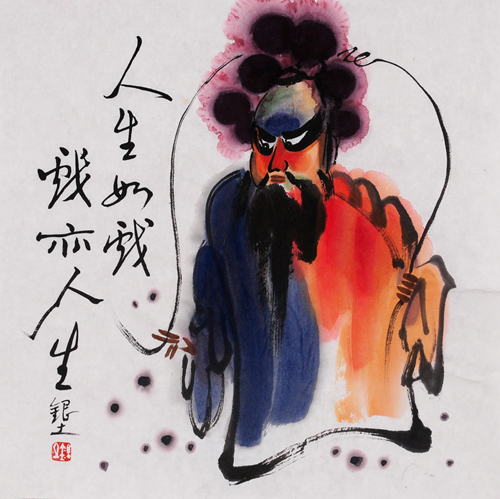 人生如戏
戏亦人生
银土